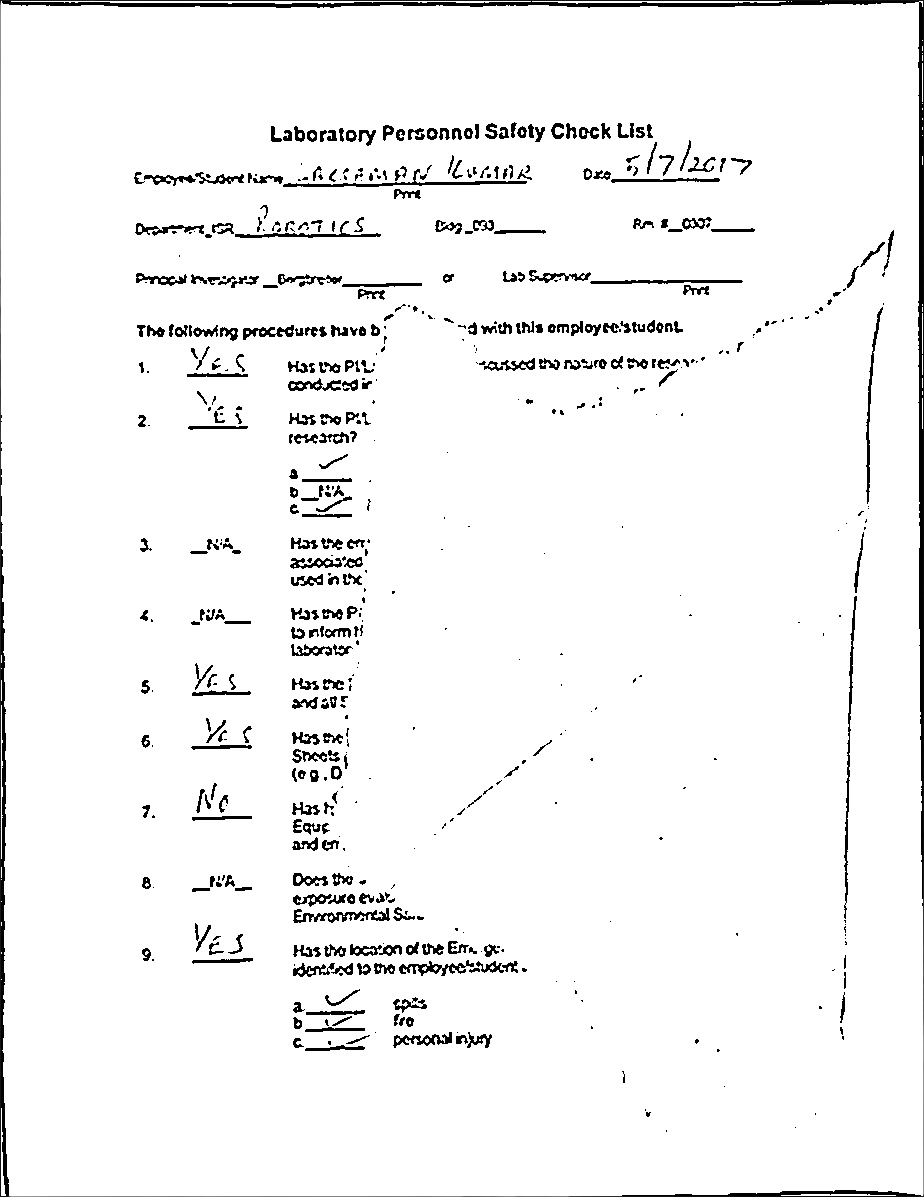 Laboratory Personnel Safety Check List
Employee/Student Name KUMAR Date 5/7/2017
Print
Department_ISR_ ROBOTICS Bldg_093 Rm #_0307
Principal Investigator or Lab Supervisor
Print Print
The following procedures have b d with this employee/student.
1. YES Has the PI/L scussed the nature of the resear
conducted in
2. YES Has the PI/L
research?
a ✓
b _N/A
c. ✓
3. _N/A_ Has the em
associated
used in the
4. _N/A Has the P
to inform
laborator
5. YES Has the
and all
6. YES Has the
Sheets
(e.g., D
7. No Has
Equip
and en
8. _N/A_ Does the
exposure eval
Environmental
9. YES Has the location of the
identified to the employee/student
a ✓ spills
b ✓ fire
c. ✓ personal injury